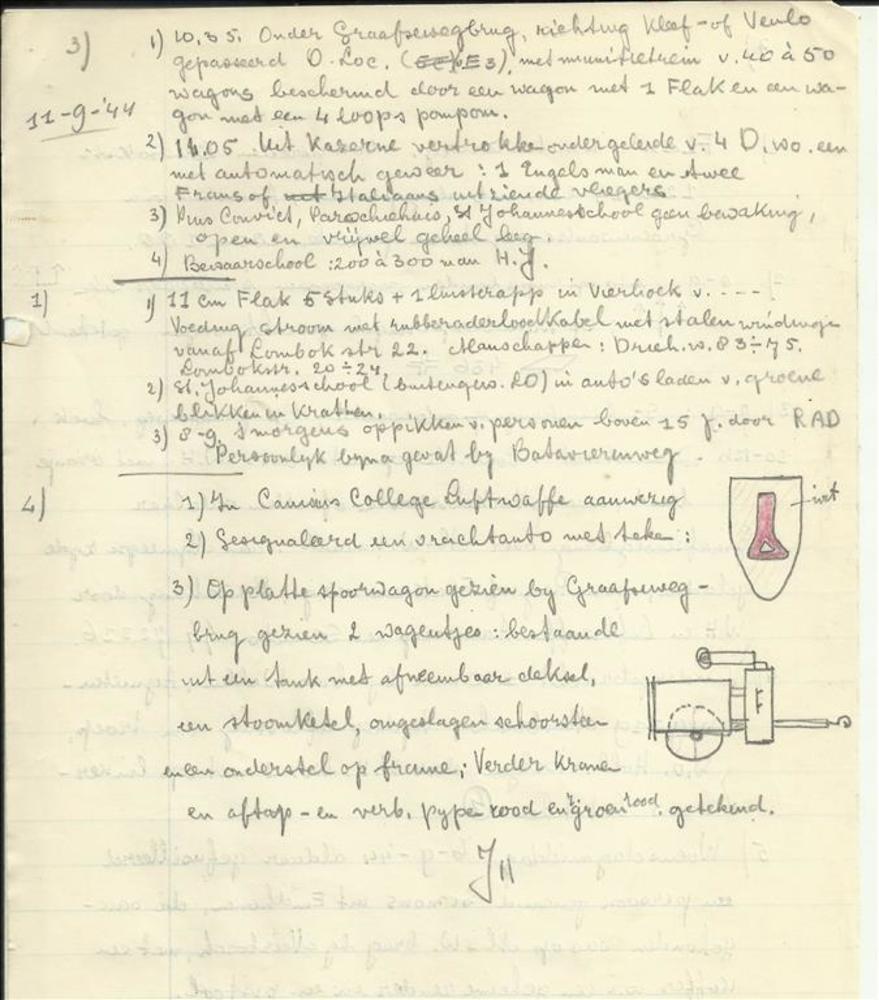 3) 1) 10,35. Onder Graafsewegbrug, richting Kleef- of Venlo
gepasseerd D. Loc. ( E3), met munitietrein v. 40 à 50
wagons beschermd door een wagon met 1 Flak en een wa-
11-9-'44 gon met een 4 loops pompom.
2) 14.05 Uit Kazerne vertrokken onder geleide v. 4 D. wo. een
met automatisch geweer : 1 Engelsman en twee
Frans of Italiaans uitziende vliegers
3) Pius Convict, Parochiehuis, St Johannesschool geen bewaking,
open en vrijwel geheel leeg.
4) Bersaarschool : 200 à 300 man H.J.
1) 1) 11 cm Flak 5 stuks + 1 luisterapp in Vierhoek v. ----
Voeding stroom met rubberaderloodkabel met stalen windinge
vanaf Lombok str 22. Manschappen : Drieh. w. 83÷75.
Lombokstr. 20÷24.
2) St. Johannesschool (buitengew. LO) in auto's laden v. groene
blikken in Kratten.
3) 8-9, 's morgens oppikken v. personen boven 15 j. door RAD
Persoonlyk byna gevat by Batavierenweg
4) 1) In Canisius College Luftwaffe aanwezig
2) Gesignaleerd een vrachtauto met teken :
wit
3) Op platte spoorwagon gezien by Graafseweg-
brug gezien 2 wagentjes : bestaande
uit een tank met afneembaar deksel,
een stoomketel, omgeslagen schoorsteen
en een onderstel op frame; Verder Kranen
en aftap- en verb. pypen rood en groen rood getekend.